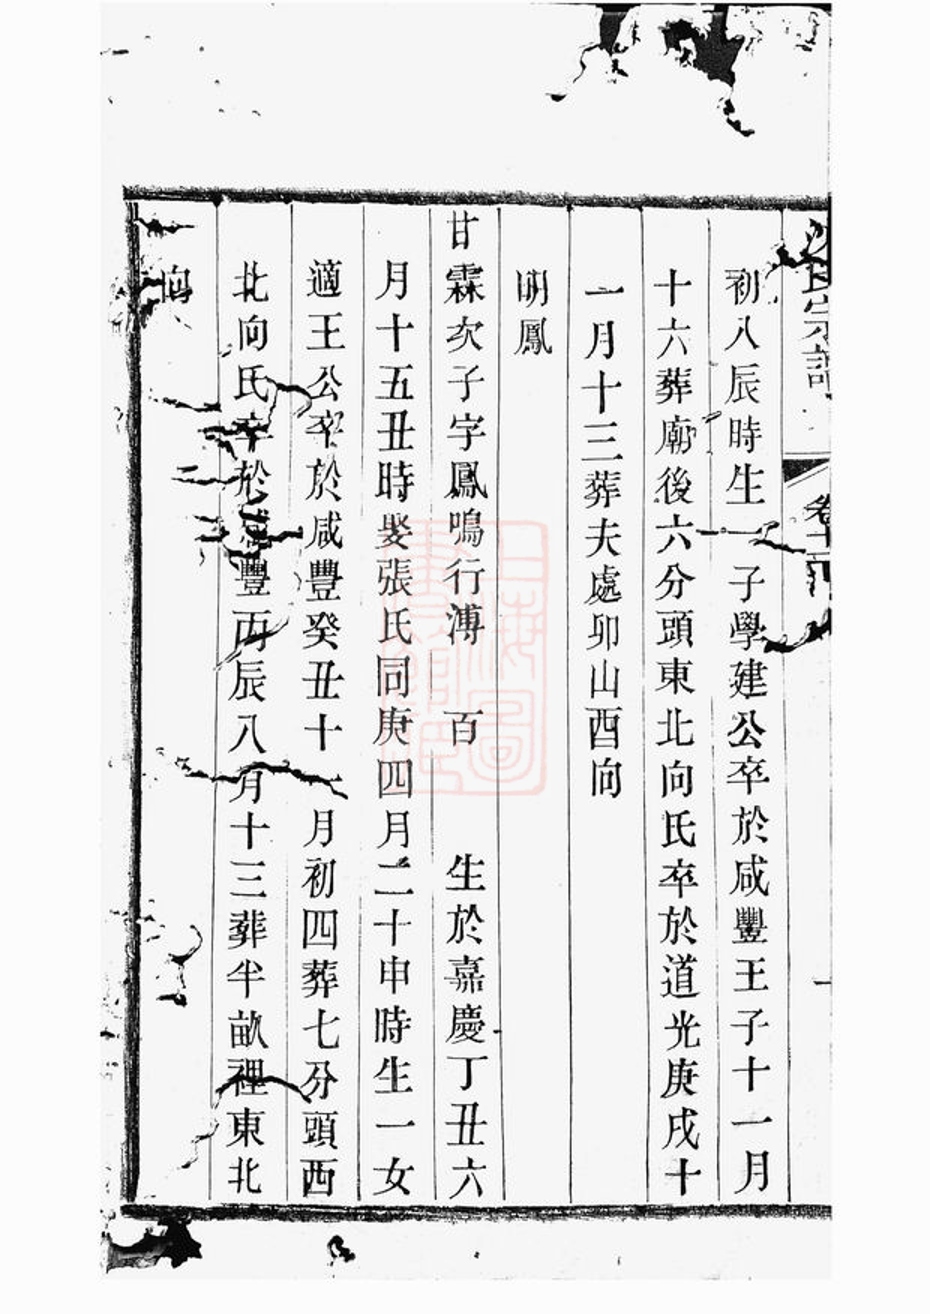 氏宗譜
卷十
初八辰時生一子學建公卒於咸豐王子十一月
十六葬廟後六分頭東北向氏卒於道光庚戌十
一月十三葬夫處卯山酉向
明鳳
甘霖次子字鳳鳴行溥 百 生於嘉慶丁丑六
月十五丑時娶張氏同庚四月二十申時生一女
適王公卒於咸豐癸丑十一月初四葬七分頭西
北向氏卒於咸豐丙辰八月十三葬半畝裡東北
向
上海圖書館藏